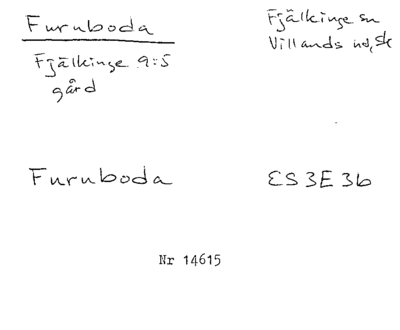 Furuboda
Fjälkinge sn
Villands hd, Sk
Fjälkinge 9:5
gård
Furuboda
ES3E3b
Nr 14615